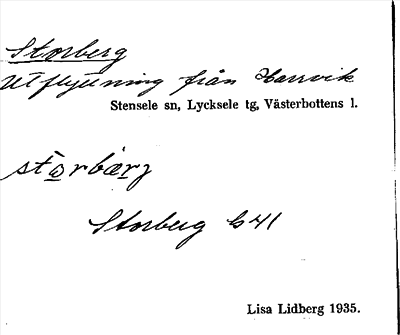 Storberg
Utflyttning från Harrvik
Stensele sn, Lycksele tg, Västerbottens l.
stɷrbærj
Storberg G41
Lisa Lidberg 1935.